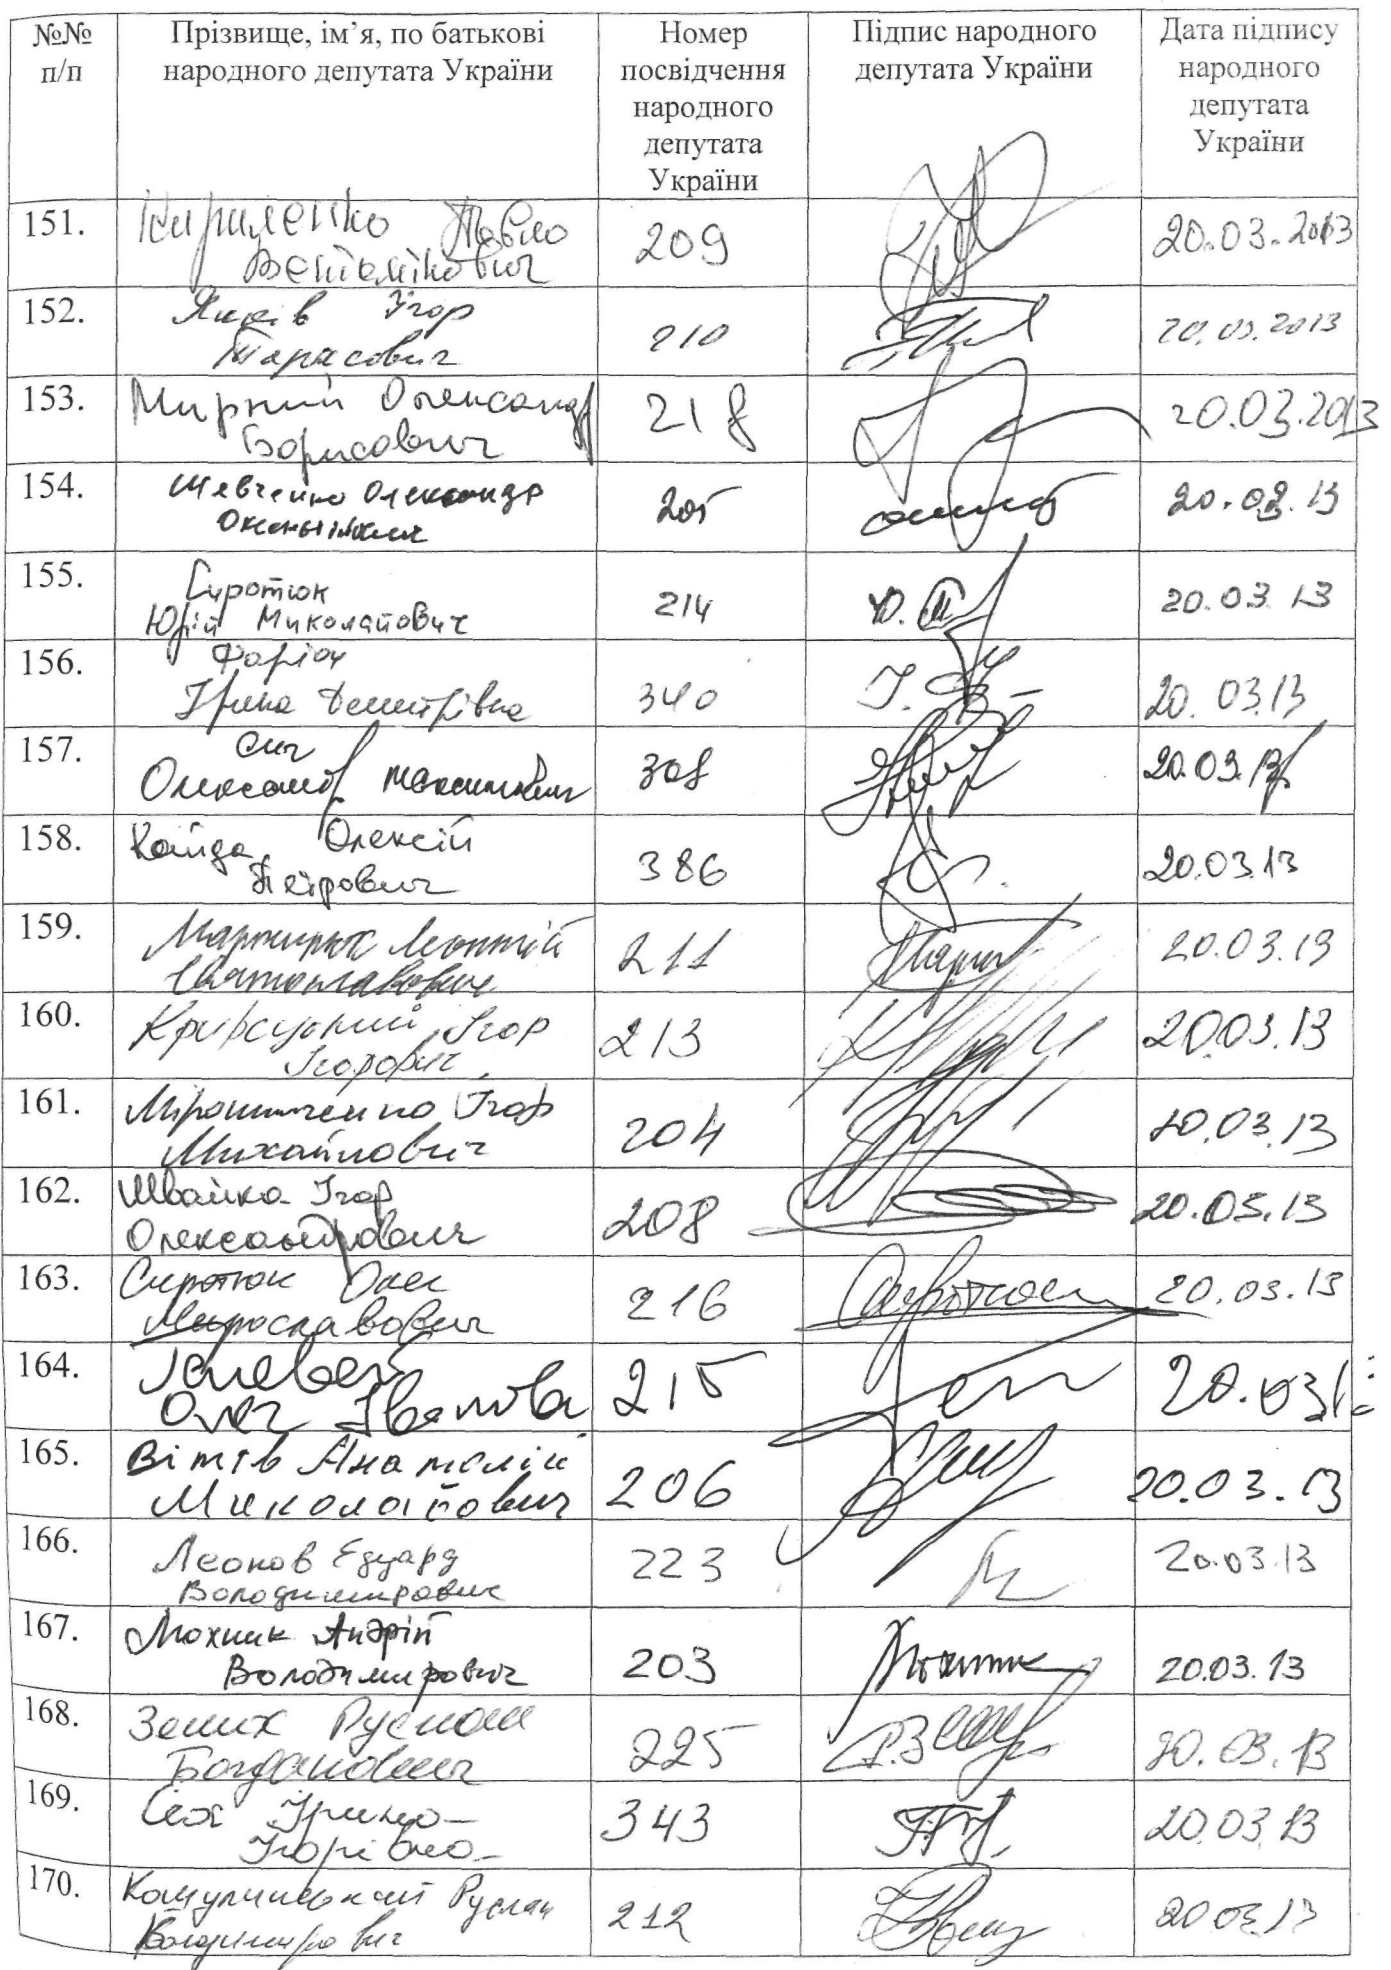 №№
п/п
Прізвище, ім’я, по батькові
народного депутата України
Номер
посвідчення
народного
депутата
України
Підпис народного
депутата України
Дата підпису
народного
депутата
України
151.
Кириленко Павло
209
20.03.2013
152.
Янків Ігор
Тарасович
210
20.03.2013
153.
Мирний Олександр
Борисович
218
20.03.2013
154.
Шевченко Олександр
205
20.03.13
155.
Сиротюк
Юрій Миколайович
214
20.03.13
156.
Фаріон
Ірина Дмитрівна
340
20.03.13
157.
Сич
Олександр Максимович
308
20.03.13
158.
Кайда Олексій
Петрович
386
20.03.13
159.
Мартинюк Леонтій
Святославович
211
20.03.13
160.
Кривецький Ігор
Ігорович
213
20.03.13
161.
Мірошниченко Ігор
Михайлович
204
20.03.13
162.
Швайка Ігор
Олександрович
208
20.03.13
163.
Сиротюк Олег
Мирославович
216
20.03.13
164.
Олег Іванович
215
20.03.13
165.
Вітів Анатолій
Миколайович
206
20.03.13
166.
Леонов Едуард
Володимирович
223
20.03.13
167.
Мохник Андрій
Володимирович
203
20.03.13
168.
Зелик Руслан
Богданович
225
20.03.13
169.
Сех Ірина
Ігорівна
343
20.03.13
170.
Кошулинський Руслан
Володимирович
212
20.03.13